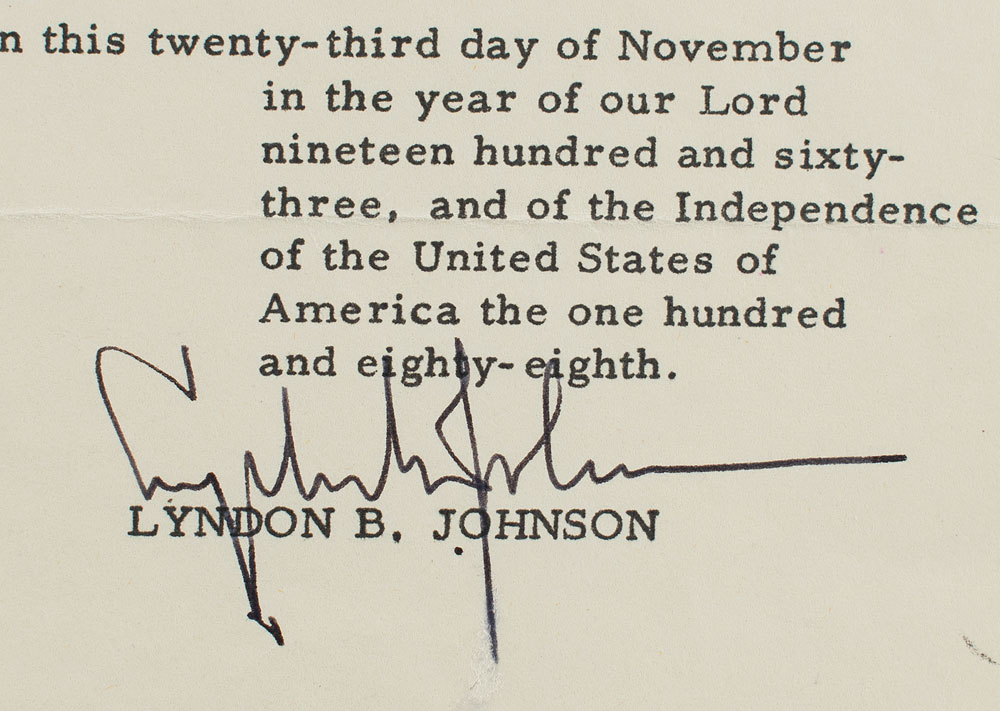 n this twenty-third day of November
in the year of our Lord
nineteen hundred and sixty-
three, and of the Independence
of the United States of
America the one hundred
and eighty-eighth.
Lyndon B. Johnson
LYNDON B. JOHNSON